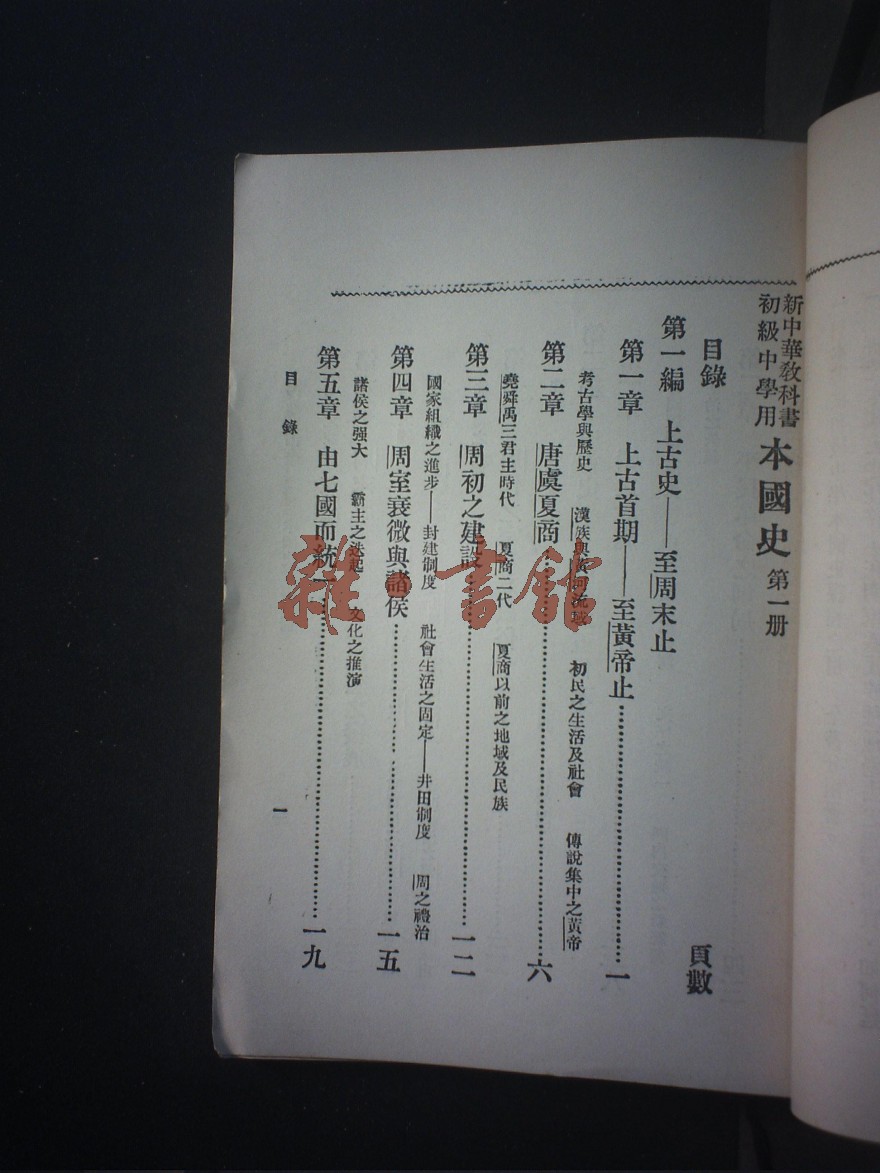 新中華教科書
初級中學用
本國史 第一册
目錄
頁數
第一編 上古史——至周末止
第一章 上古首期——至黃帝止……一
考古學與歷史 漢族與黃河流域 初民之生活及社會 傳說集中之黃帝
第二章 唐虞夏商……六
堯舜禹三君主時代 夏商二代 夏商以前之地域及民族
第三章 周初之建設……一二
國家組織之進步——封建制度 社會生活之固定——井田制度 周之禮治
第四章 周室衰微與諸侯……一五
諸侯之强大 霸主之迭起 文化之推演
第五章 由七國而統一……一九
目錄
一
雜·書館